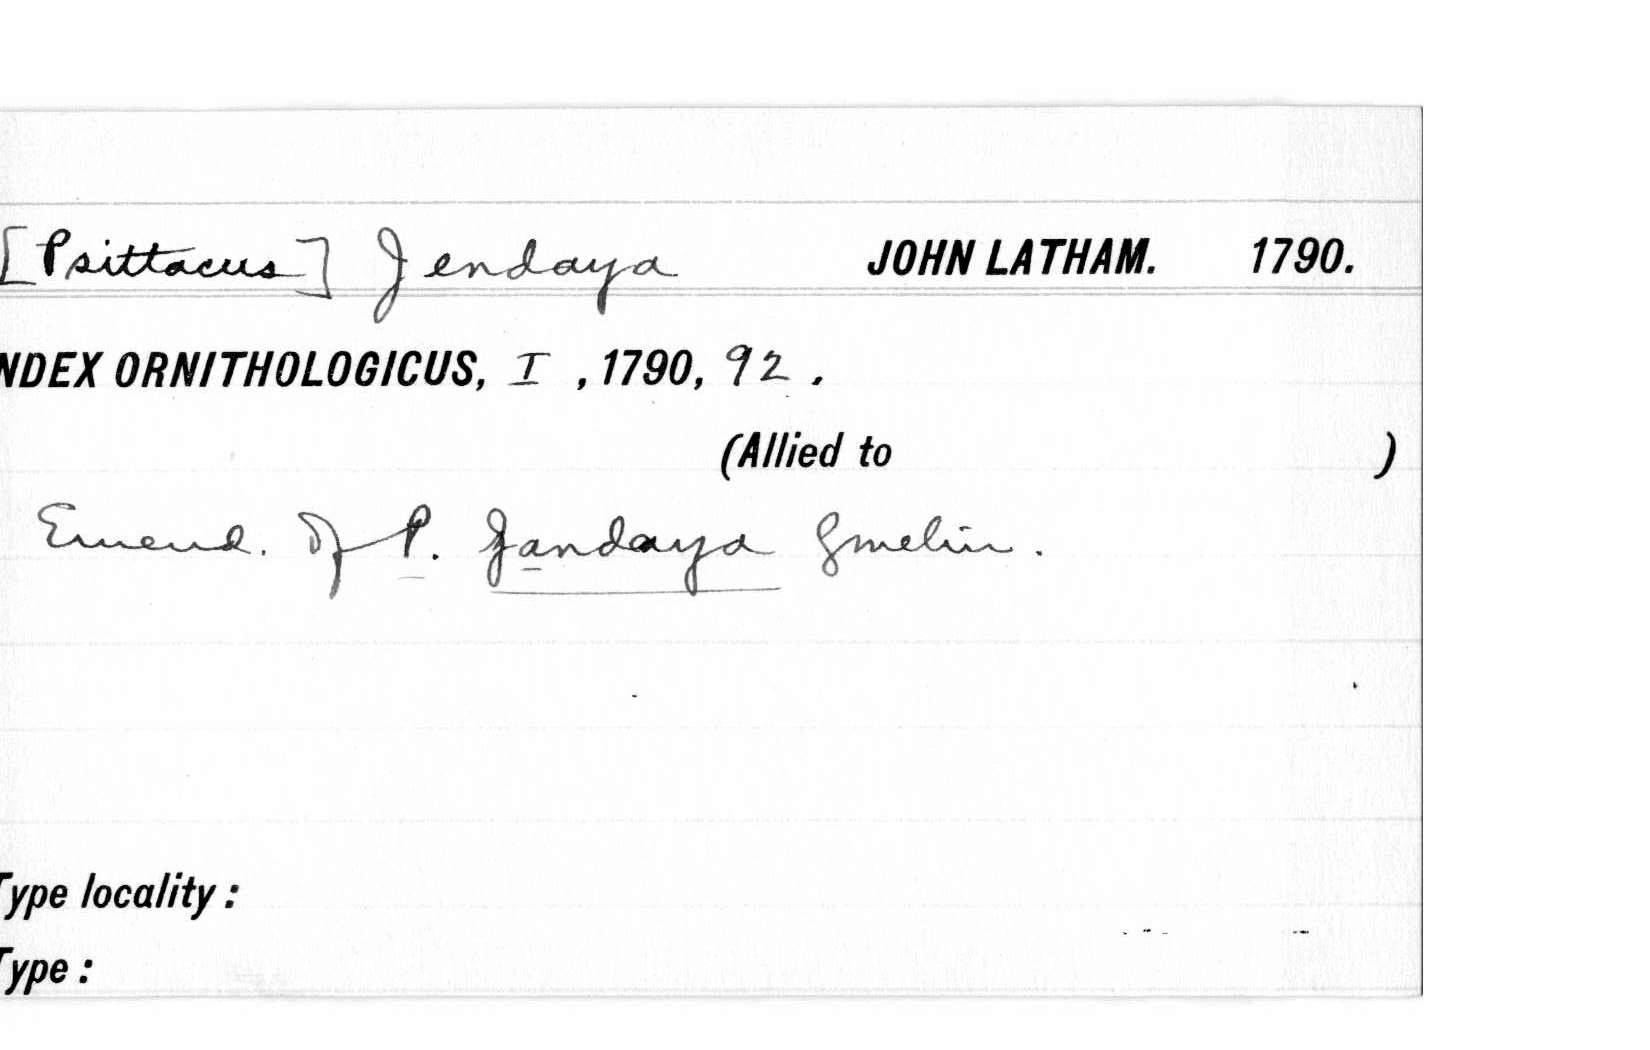 [Psittacus] Jendaya JOHN LATHAM. 1790.
NDEX ORNITHOLOGICUS, I , 1790, 92 .
(Allied to )
Emend. of P. Jandaya Gmelin.
Type locality :
Type :